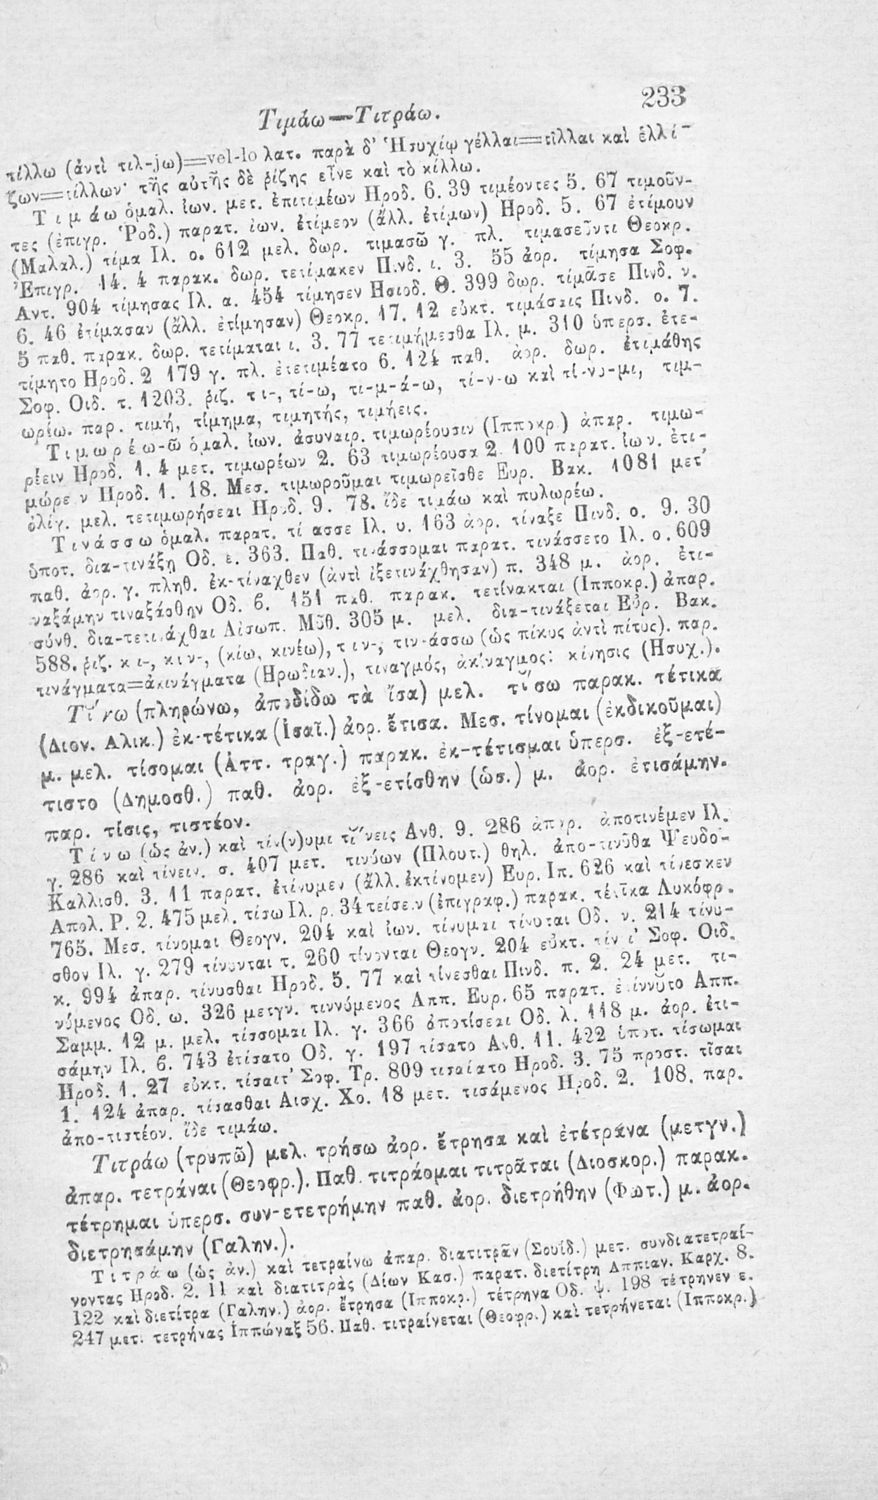 Τιμάω—Τιτράω. 233
τίλλω (ἀντὶ τιλ-jω)=vel-lo λατ. παρὰ δ' Ἡσυχίῳ γέλλαι=τῖλλαι καὶ ἑλλί-
ζων=τίλλων· τῆς αὐτῆς δὲ ῥίζης εἶνε καὶ τὸ κίλλω.
Τιμάω ὁμαλ. ἰων. μετ. ἐπιτιμέων Ηροδ. 6. 39 τιμέοντες 5. 67 τιμοῦν-
τες (ἐπιγρ. Ῥοδ.) παρατ. ἰων. ἐτίμεον (ἄλλ. ἐτίμων) Ηροδ. 5. 67 ἐτίμουν
(Μαλαλ.) τίμα Ιλ. ο. 612 μελ. δωρ. τιμασῶ γ. πλ. τιμασεῦντι Θεοκρ.
Ἐπιγρ. 14. 4 παρακ. δωρ. τετίμακεν Πινδ. ι. 3. 55 ἀορ. τίμησα Σοφ.
Αντ. 904 τίμησας Ιλ. α. 454 τίμησεν Ησιοδ. Θ. 399 δωρ. τίμᾶσε Πινδ. ν.
6. 46 ἐτίμασαν (ἄλλ. ἐτίμησαν) Θεοκρ. 17. 12 εὐκτ. τιμάσαις Πινδ. ο. 7.
5 παθ. παρακ. δωρ. τετίμαται ι. 3. 77 τετιμήμεσθα Ιλ. μ. 310 ὑπερσ. ἐτε-
τίμητο Ηροδ. 2 179 γ. πλ. ἐτετιμέατο 6. 124 παθ. ἀορ. δωρ. ἐτιμάθης
Σοφ. Οιδ. τ. 1203. ῥιζ. τι-, τί-ω, τι-μ-ά-ω, τί-ν-ω καὶ τί-νυ-μι, τιμ-
ωρέω. παρ. τιμή, τίμημα, τιμητής, τιμήεις.
Τιμωρέω-ῶ ὁμαλ. ἰων. ἀσυναιρ. τιμωρέουσιν (Ιπποκρ.) ἀπαρ. τιμω-
ρέειν Ηροδ. 1. 4 μετ. τιμωρέων 2. 63 τιμωρέουσα 2. 100 παρατ. ἰων. ἐτι-
μώρεον Ηροδ. 1. 18. Μεσ. τιμωροῦμαι τιμωρεῖσθε Ευρ. Βακ. 1081 μετ'
ὀλίγ. μελ. τετιμωρήσεαι Ηροδ. 9. 78. ἴδε τιμάω καὶ πυλωρέω.
Τινάσσω ὁμαλ. παρατ. τίνασσε Ιλ. υ. 163 ἀορ. τίναξε Πινδ. ο. 9. 30
ὑποτ. δια-τινάξῃ Οδ. ε. 363. Παθ. τινάσσομαι παρατ. τινάσσετο Ιλ. ο. 609
παθ. ἀορ. γ. πληθ. ἐκ-τίναχθεν (ἀντὶ ἐξετινάχθησαν) π. 348 μ. ἀορ. ἐτι-
ναξάμην τιναξάσθην Οδ. β. 151 παθ. παρακ. τετίνακται (Ιπποκρ.) ἀπαρ.
σύνθ. δια-τετινάχθαι Αἰσωπ. Μῦθ. 305 μ. μελ. δια-τινάξεται Εὐρ. Βακ.
588. ῥιζ. κι-, κιν-, (κίω, κινέω), τιν-, τιν-άσσω (ὡς πίκυς ἀντὶ πίτυς). παρ.
τινάγματα=ἀκινάγματα (Ηρωδιαν.), τιναγμός, ἀκίναγμος: κίνησις (Ησυχ.).
Τίνω (πληρώνω, ἀποδίδω τὰ ἴσα) μελ. τίσω παρακ. τέτικα
(Διον. Αλικ.) ἐκ-τέτικα (Ισαῖ.) ἀορ. ἔτισα. Μεσ. τίνομαι (ἐκδικοῦμαι)
μ. μελ. τίσομαι (Ἀττ. τραγ.) παρακ. ἐκ-τέτισμαι ὑπερσ. ἐξ-ετέ-
τιστο (Δημοσθ.) παθ. ἀορ. ἐξ-ετίσθην (ὡσ.) μ. ἀορ. ἐτισάμην.
παρ. τίσις, τιστέον.
Τίνω (ὡς ἀν.) καὶ τίν(ν)υμι τίνεις Ανθ. 9. 286 ἀπαρ. ἀποτινέμεν Ιλ.
γ. 286 καὶ τίνειν. σ. 407 μετ. τινύων (Πλουτ.) θηλ. ἀπο-τινῦθα Ψευδο-
Καλλισθ. 3. 11 παρατ. ἐτίνυμεν (ἄλλ. ἐκτίνομεν) Ευρ. Ιπ. 626 καὶ τίνεσκεν
Απολ. Ρ. 2. 475 μελ. τίσω Ιλ. ρ. 34 τείσειν (ἐπιγραφ.) παρακ. τέτικα Λυκόφρ.
765. Μεσ. τίνομαι Θεογν. 204 καὶ ἰων. τίνυμαι τίνυται Οδ. ν. 214 τίνυ-
σθον Ιλ. γ. 279 τίνυνται τ. 260 τίνονται Θεογν. 204 εὐκτ. Σοφ. Οιδ.
κ. 994 ἀπαρ. τίνυσθαι Ηροδ. 5. 77 καὶ τίνεσθαι Πινδ. π. 2. 24 μετ. τι-
νύμενος Οδ. ω. 326 μετγν. τιννύμενος Αππ. Ευρ. 65 παρατ. ἐτίννυτο Αππ.
Σαμμ. 12 μ. μελ. τίσσομαι Ιλ. γ. 366 ἀποτίσεαι Οδ. λ. 118 μ. ἀορ. ἐτι-
σάμην Ιλ. β. 743 ἐτίσατο Οδ. γ. 197 τίσατο Ανθ. 11. 422 ὑποτ. τίσωμαι
Ηροδ. 1. 27 εὐκτ. τίσαιτ' Σοφ. Τρ. 809 τισαίατο Ηροδ. 3. 75 προστ. τῖσαι
1. 124 ἀπαρ. τίσασθαι Αισχ. Χο. 18 μετ. τισάμενος Ηροδ. 2. 108. παρ.
ἀπο-τιστέον. ἴδε τιμάω.
Τιτράω (τρυπῶ) μελ. τρήσω ἀορ. ἔτρησα καὶ ἐτέτρανα (μετγν.)
ἀπαρ. τετράναι (Θεοφρ.). Παθ. τιτράομαι τιτρᾶται (Διοσκορ.) παρακ.
τέτρημαι ὑπερσ. συν-ετετρήμην παθ. ἀορ. διετρήθην (Φωτ.) μ. ἀορ.
διετρησάμην (Γαλην.).
Τιτράω (ὡς ἀν.) καὶ τετραίνω ἀπαρ. διατιτρᾶν (Σουΐδ.) μετ. συνδιατετραί-
νοντας Ηροδ. 2. 11 καὶ διατιτρὰς (Δίων Κασ.) παρατ. διετίτρη Αππιαν. Καρχ. 8.
122 καὶ διετίτρα (Γαλην.) ἀορ. ἔτρησα (Ιπποκρ.) τέτρηνα Οδ. ψ. 198 τέτρηνεν ε.
247 μετ. τετρήνας Ιππώναξ 56. Παθ. τιτραίνεται (Θεοφρ.) καὶ τετρήνεται (Ιπποκρ.)